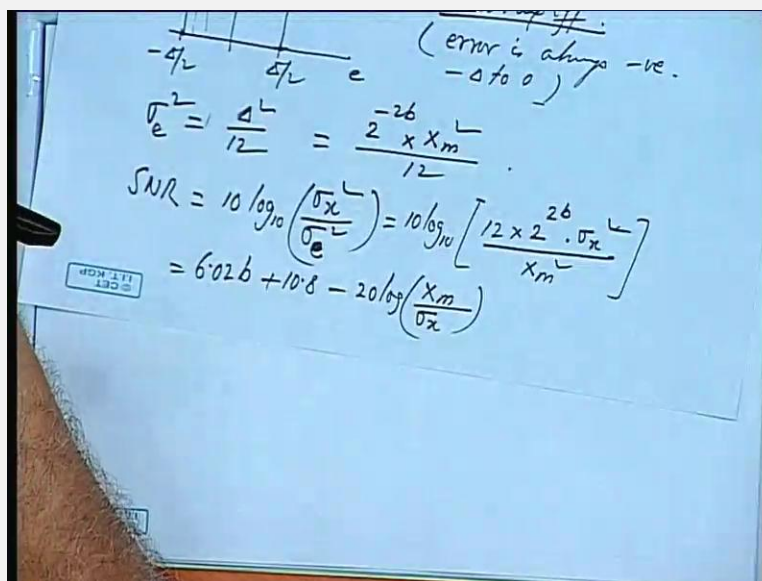 (error is always -ve.
-Δ/2 Δ/2 e -Δ to 0)
σe² = Δ²/12 = 2^-2b x Xm²/12.
SNR = 10 log10(σx²/σe²) = 10 log10[12 x 2^2b . σx²/Xm²]
= 6.02b + 10.8 - 20 log(Xm/σx)
© CET
I.I.T. KGP